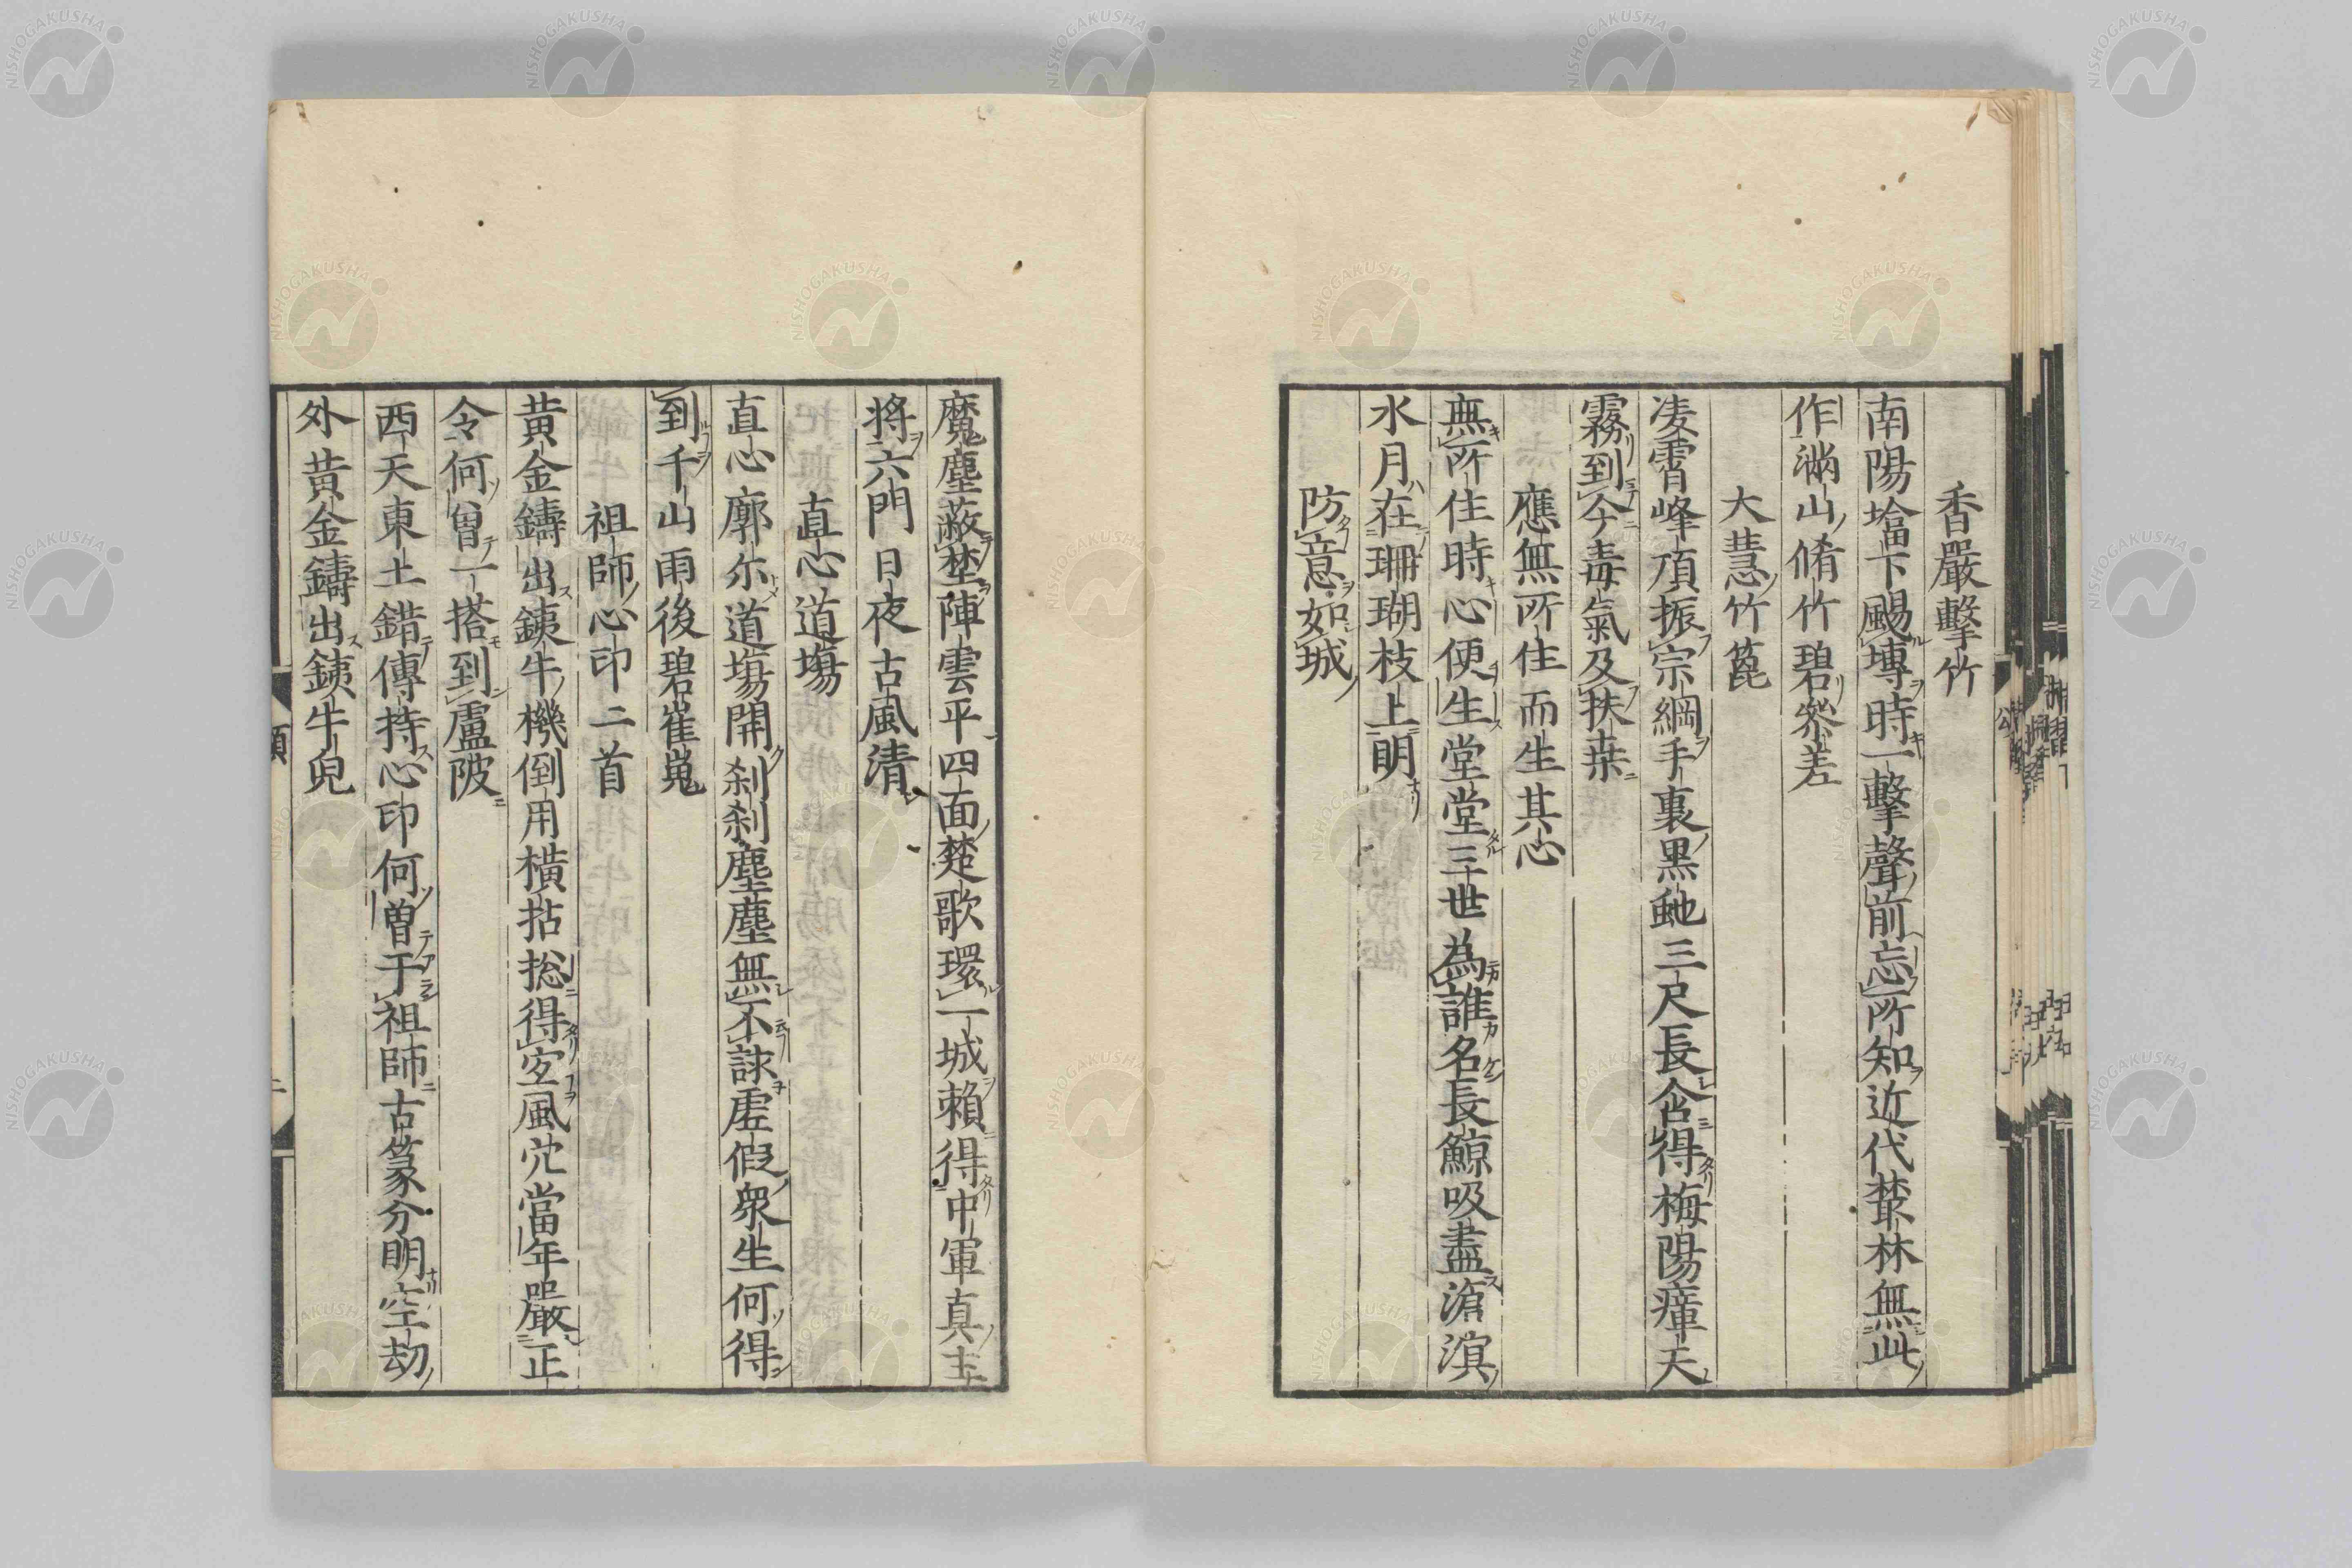 香嚴擊竹
南陽墖下颺塼時一擊聲前忘所知近代叢林無此
作滿山脩竹碧參差
大慧竹篦
凌霄峰頂振宗綱手裏黒虵三尺長含得梅陽瘴天
霧到今毒氣及扶桒
應無所住而生其心
無所住時心便生堂堂三世為誰名長鯨吸盡滄溟
水月在珊瑚枝上明
防意如城
魔塵蔽埜陣雲平四面楚歌環一城賴得中軍真主
将六門日夜古風清
直心道塲
直心廓尓道塲開刹刹塵塵無不諌虗假衆生何得
到千山雨後碧崔嵬
祖師心印二首
黄金鑄出鐵牛機倒用橫拈捴得宐風穴當年嚴正
令何曽一搭到盧陂
西天東土錯傳持心印何曽于祖師古篆分明空劫
外黄金鑄出鐵牛兒
頌
二
NISHOGAKUSHA